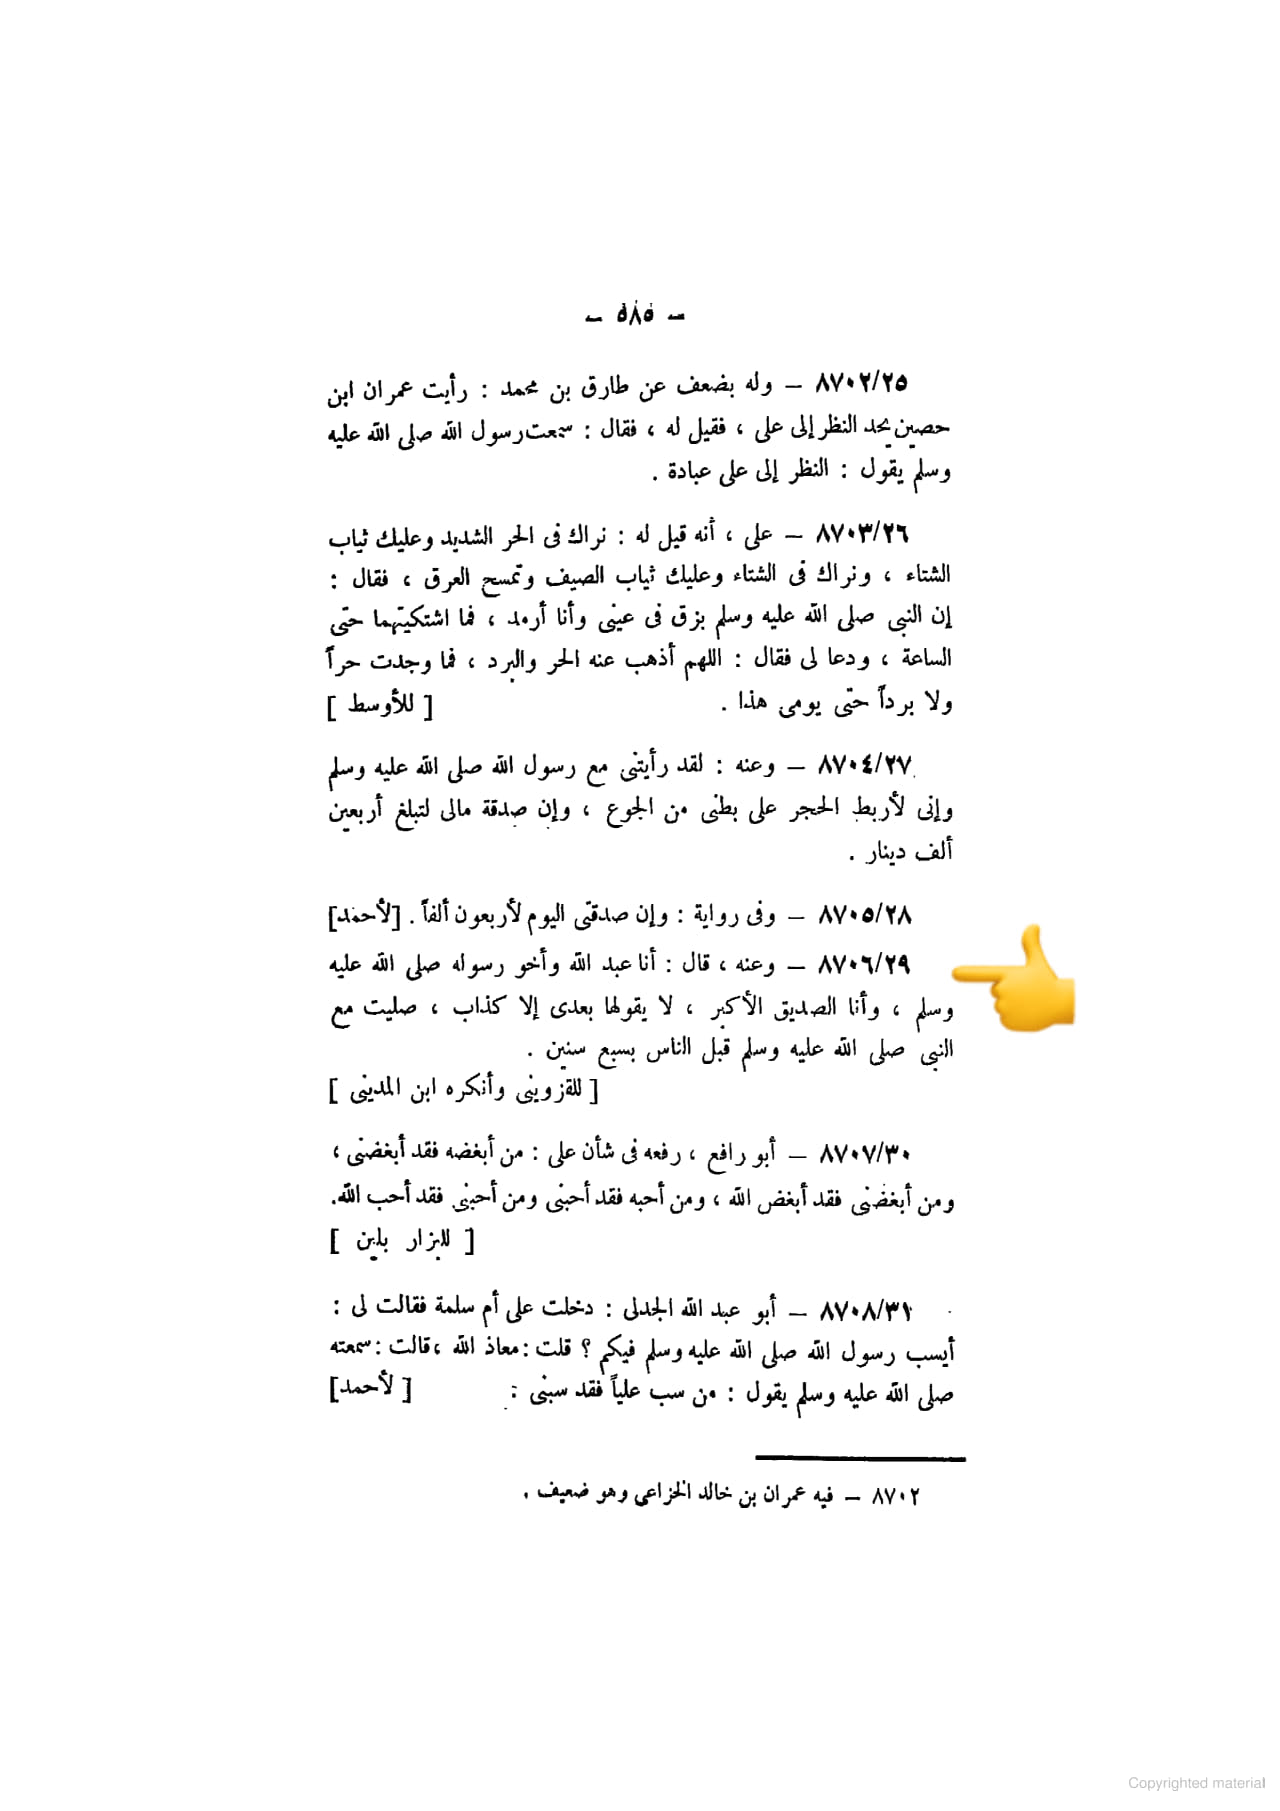 — ٥٨٥ —
٨٧٠٢/٢٥ — وله بضعف عن طارق بن محمد : رأيت عمران ابن
حصين يحد النظر إلى على ، فقيل له ، فقال : سمعت رسول الله صلى الله عليه
وسلم يقول : النظر إلى على عبادة .
٨٧٠٣/٢٦ — على ، أنه قيل له : نراك فى الحر الشديد وعليك ثياب
الشتاء ، ونراك فى الشتاء وعليك ثياب الصيف وتمسح العرق ، فقال :
إن النبى صلى الله عليه وسلم بزق فى عينى وأنا أرمد ، فما اشتكيتهما حتى
الساعة ، ودعا لى فقال : اللهم أذهب عنه الحر والبرد ، فما وجدت حراً
ولا برداً حتى يومى هذا . [ للأوسط ]
٨٧٠٤/٢٧ — وعنه : لقد رأيتنى مع رسول الله صلى الله عليه وسلم
وإنى لأربط الحجر على بطنى من الجوع ، وإن صدقة مالى لتبلغ أربعين
ألف دينار .
٨٧٠٥/٢٨ — وفى رواية : وإن صدقتى اليوم لأربعون ألفاً . [لأحمد]
٨٧٠٦/٢٩ — وعنه ، قال : أنا عبد الله وأخو رسوله صلى الله عليه
وسلم ، وأنا الصديق الأكبر ، لا يقولها بعدى إلا كذاب ، صليت مع
النبى صلى الله عليه وسلم قبل الناس بسبع سنين .
[ للقزوينى وأنكره ابن المدينى ]
٨٧٠٧/٣٠ — أبو رافع ، رفعه فى شأن على : من أبغضه فقد أبغضنى ،
ومن أبغضنى فقد أبغض الله ، ومن أحبه فقد أحبنى ومن أحبنى فقد أحب الله.
[ للبزار بلين ]
٨٧٠٨/٣١ — أبو عبد الله الجدلى : دخلت على أم سلمة فقالت لى :
أيسب رسول الله صلى الله عليه وسلم فيكم ؟ قلت : معاذ الله ، قالت : سمعته
صلى الله عليه وسلم يقول : من سب علياً فقد سبنى : [ لأحمد]
٨٧٠٢ — فيه عمران بن خالد الخزاعى وهو ضعيف .
Copyrighted material